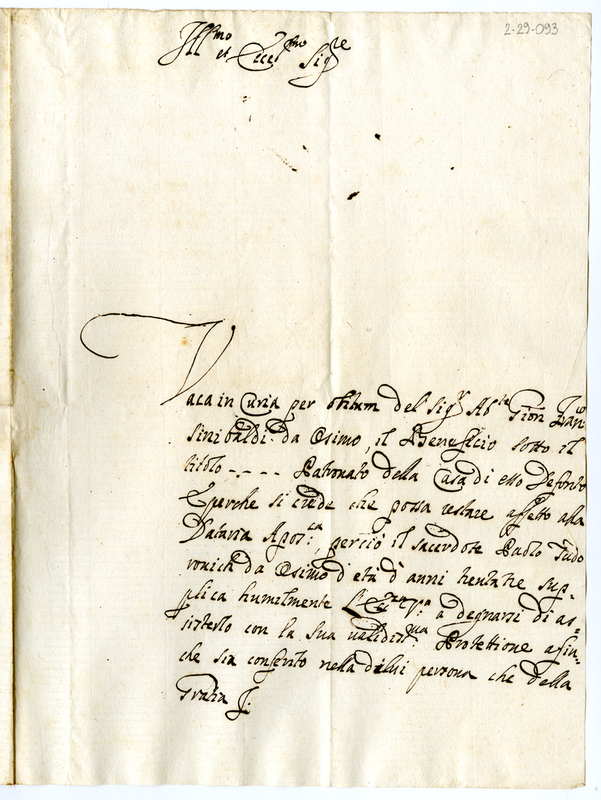 2-29-093
Ill.mo et Ecc.mo Sig.re
Vaca in Curia per obitum del Sig.r Ab.te Gion
Sinibaldi da Osimo, il Beneficio sotto il
titolo - - - - Patronato della Casa di esso Defonto
E perche si crede che possa restare affetto alla
Dataria Apos.ca, perciò il sacerdote Paolo Fudo
vouich da Osimo d'età d'anni trentatre sup=
plica humilmente a degnarsi di as=
sisterlo con la sua validis.ma Protettione afin=
che sia conferito nella di lui persona che della
Gratia